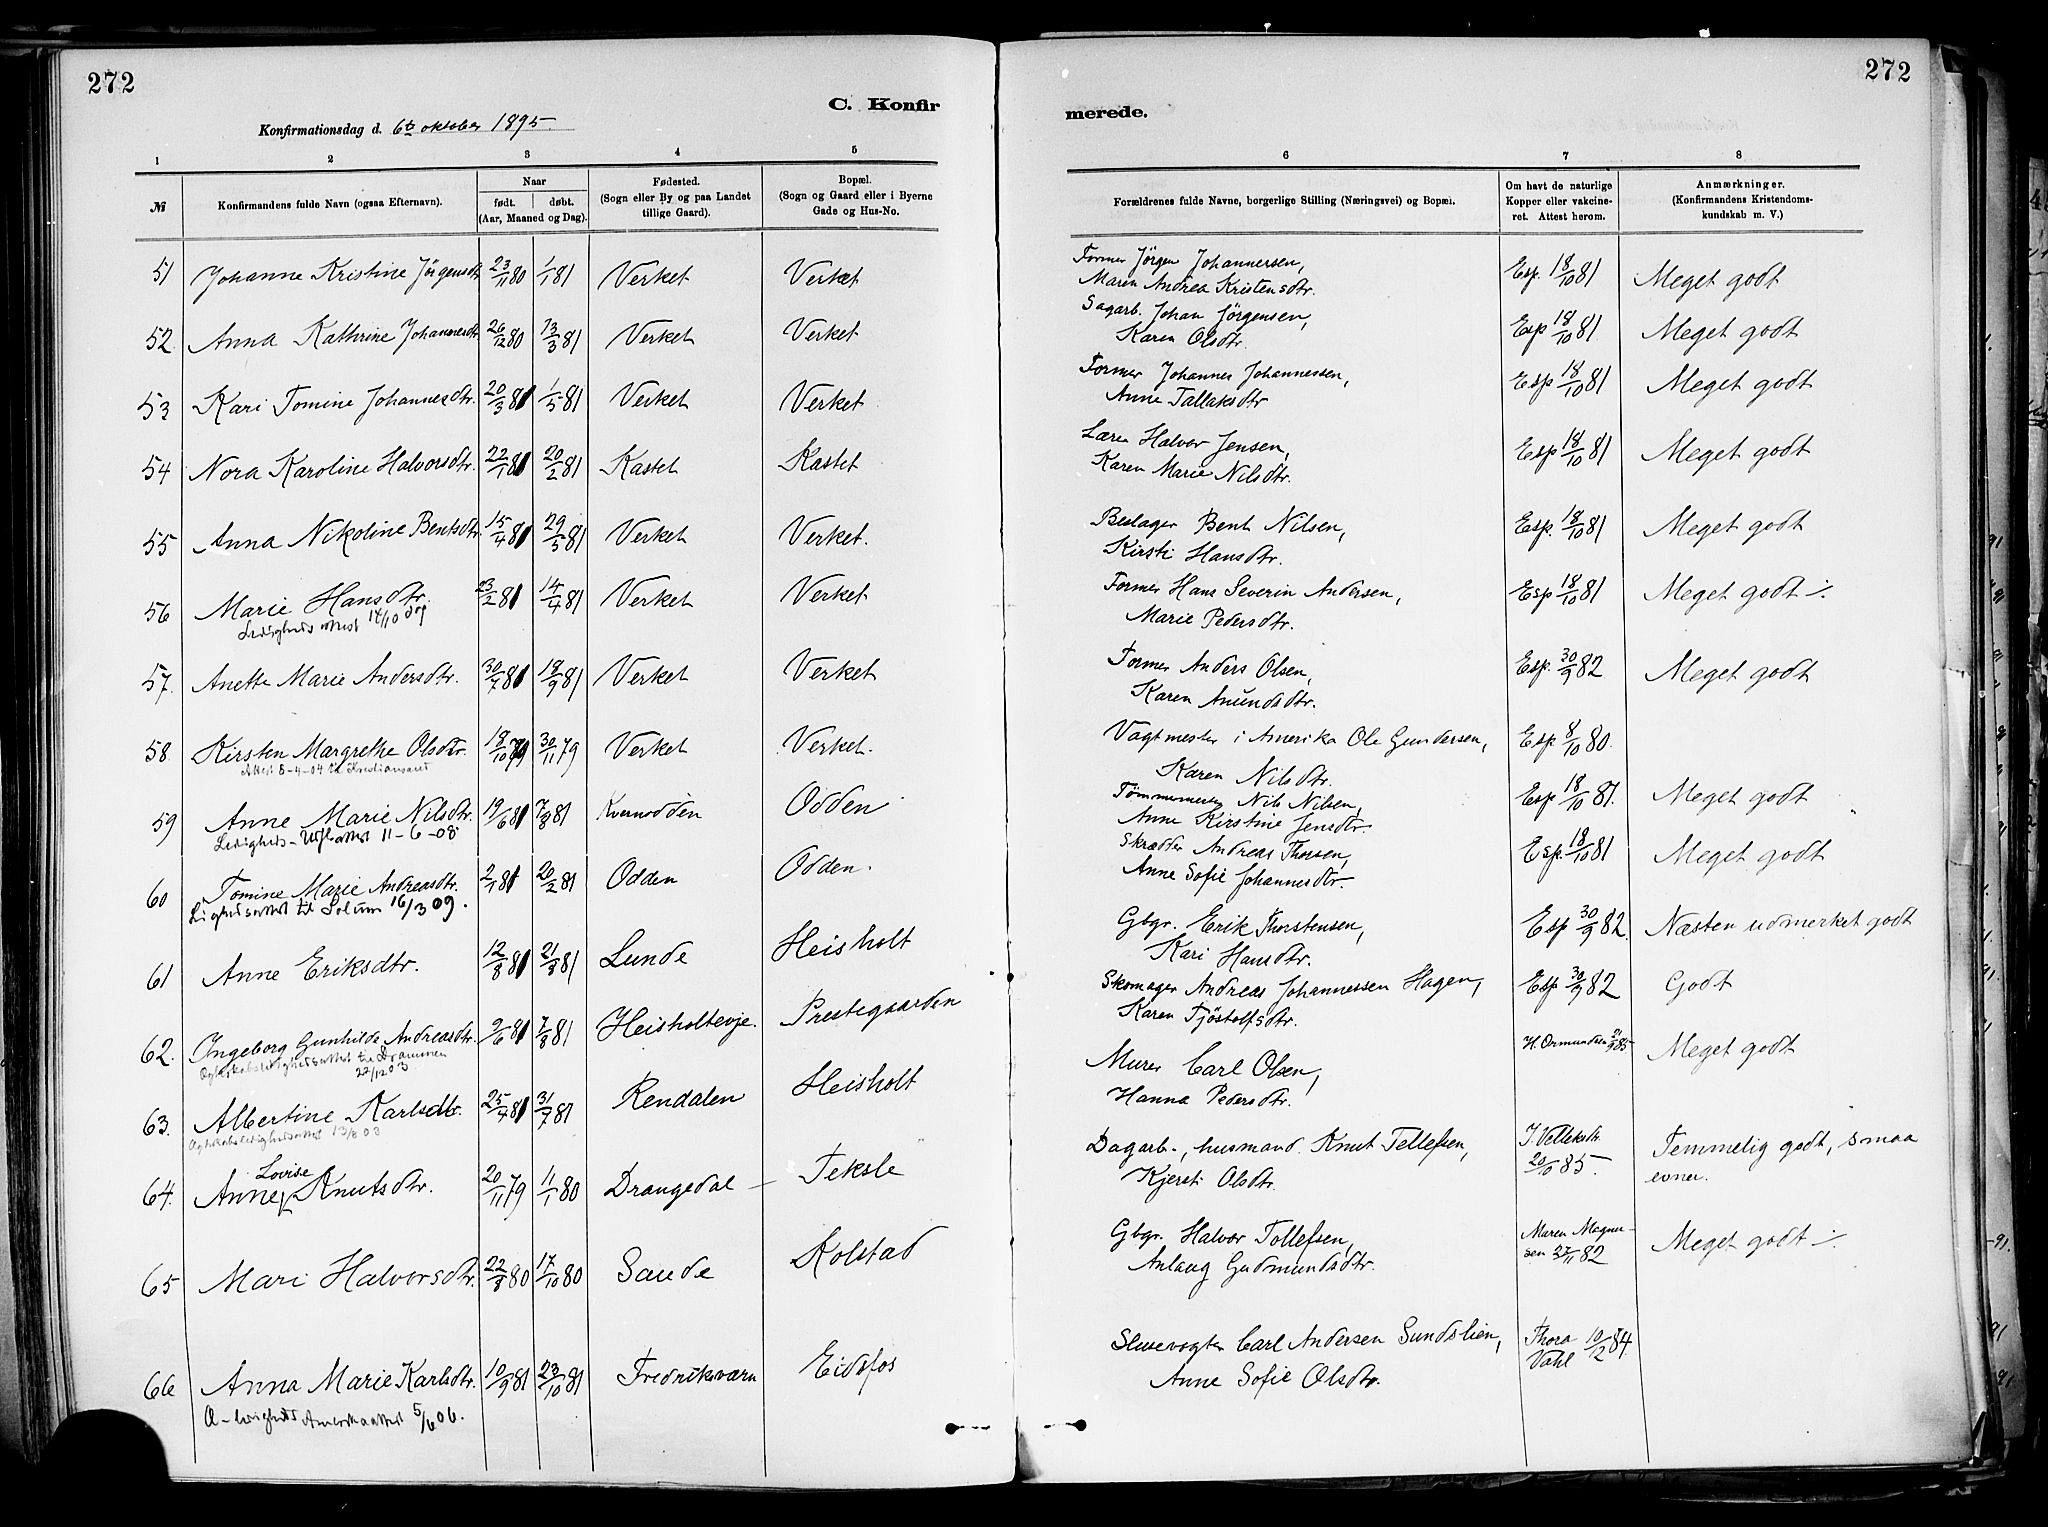 272
272
C. Konfir
merede.
Konfirmationsdag d. 6te oktober 1895
1 2 3 4 5 6 7 8
№ Konfirmandens fulde Navn (ogsaa Efternavn). Naar født. døbt. (Aar, Maaned og Dag). Fødested. (Sogn eller By og paa Landet tillige Gaard). Bopæl. (Sogn og Gaard eller i Byerne Gade og Hus-No. Forældrenes fulde Navne, borgerlige Stilling (Næringsvei) og Bopæl. Om havt de naturlige Kopper eller vakcineret. Attest herom. Anmærkninger. (Konfirmandens Kristendomskundskab m. V.)
51 Johanne Kristine Jörgensdtr 23/11 80 1/1 81 Verket Verket Former Jörgen Johannersen, Maren Andrea Kristensdtr. Esp. 18/10 81 Meget godt
52. Anna Kathrine Johannesdtr 26/12 80 13/3 81 Verket Verket Sagarb. Johan Jörgensen, Karen Olsdtr. Esp 18/10 81. Meget godt
53 Kari Tomine Johannesdtr. 20/3 81 1/5 81 Verket Verket Former Johannes Johannessen, Anne Tallaksdtr Esp 18/10 81 Meget godt
54 Nora Karoline Halvorsdtr. 22/1 81 20/2 81 Kastet Kastet Lærer Halvor Jensen, Karen Marie Nilsdtr. Esp 18/10 81 Meget godt
55 Anna Nikoline Bentsdtr. 15/4 81 29/5 81 Verket Verket. Beslager Bent Nilsen, Kirsti Hansdtr. Esp. 18/10 81 Meget godt
56 Marie Hansdtr. 23/2 81 14/4 81 Verket Verket Former Hans Severin Andersen, Marie Pedersdtr. Esp 18/10 81 Meget godt ./.
Ledigheds attest 14/10 09
57. Anette Marie Andersdtr. 30/7 81 18/9 81 Verket Verket Former Anders Olsen, Karen Anundsdtr. Esp. 30/9 82 Meget godt
58. Kirsten Margrethe Olsdtr. 18/10 79 30/11 79 Verket Verket. Vagtmester i Amerika Ole Gundersen, Karen Nilsdtr. Esp. 8/10 80.
Attest 8-4-04 til Kristiansand
59 Anne Marie Nilsdtr. 19/6 81 7/8 81 Kvernodden Odden Tömmermester Nils Nilsen, Anne Kirstine Jensdtr. Esp 18/10 81. Meget godt
Ledigheds- Utfl attest 11-6-08
60 Tomine Marie Andreasdtr. 2/1 81 20/2 81 Odden Odden. Skrædder Andreas Thorsen, Anne Sofie Johannesdtr. Esp. 18/10 81 Meget godt
Ligheds attest til Solum 16/3 09.
61 Anne Eriksdtr. 12/3 81 Lunde Heisholt Gbgr. Erik Thorstensen, Kari Hansdtr. Esp 30/9 82. Næsten udmerket godt
62. Ingeborg Gunhilde Andreasdtr. 9/6 81 7/8 81 Heisholtevje. Prestegaarden Skomager Andreas Johannessen Hagen, Karen Tjöstolfsdtr. Esp 30/9 82 Godt
til Drammen
22/12 03
63. Albertine Karlsdtr. 25/4 81 31/7 81 Rendalen Heisholt Murer Carl Olsen, Hanna Pedersdtr. H. Ormundsen 21/9 85 Meget godt
13/8 03
64. Anne Lovise Knutsdtr. 20/11 79 11/1 80 Drangedal Teksle Dagarb., husmand Knut Tellefsen, Kjersti Olsdtr. J. Vetleksdtr. 20/10 85. Temmelig godt, smaa evner.
65 Mari Halvorsdtr. 22/8 80 17/10 80 Saude Kolstad Gbgr. Halvor Tollefsen, Anlaug Gudmundsdtr. Maren Magnussen 27/11 82 Meget godt ./.
66 Anna Marie Karlsdtr. 10/9 81 23/10 81 Fredriksværn Eidsfos Slusevogter Carl Andersen Sundslien, Anne Sofie Olsdtr. Thora Vahl 10/2 84.
Amerikaattest 5/6 06.